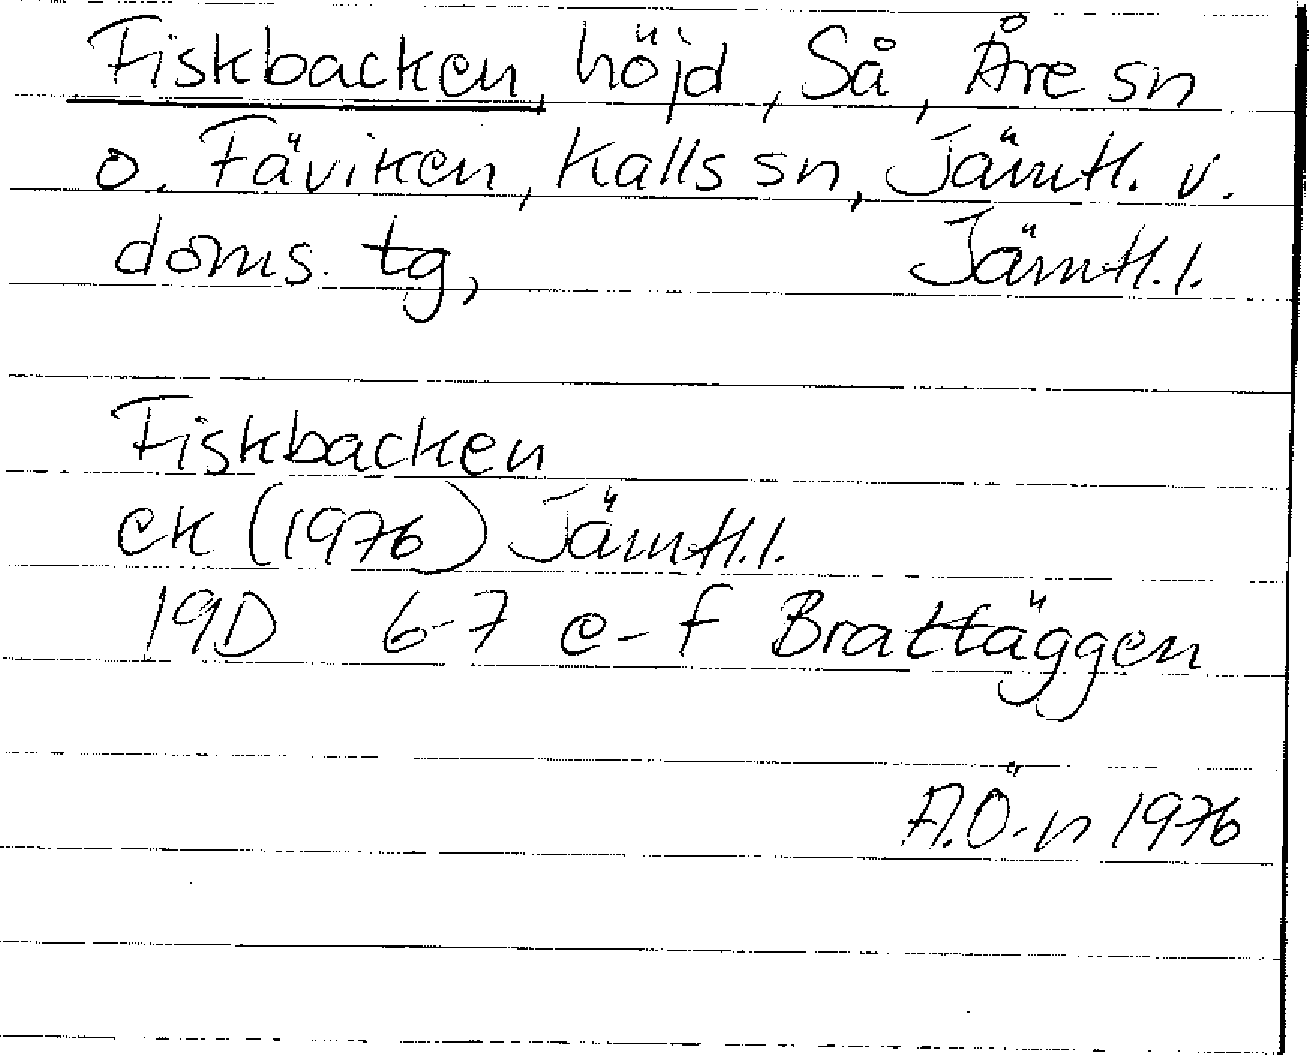 Fiskbacken, höjd, Så, Åre sn
o. Fäviken, Kalls sn, Jämtl. v.
doms. tg, Jämtl.l.
Fiskbacken
ek (1976) Jämtl.l.
19D 6-7 e-f Brattäggen
A.Ö-n 1976